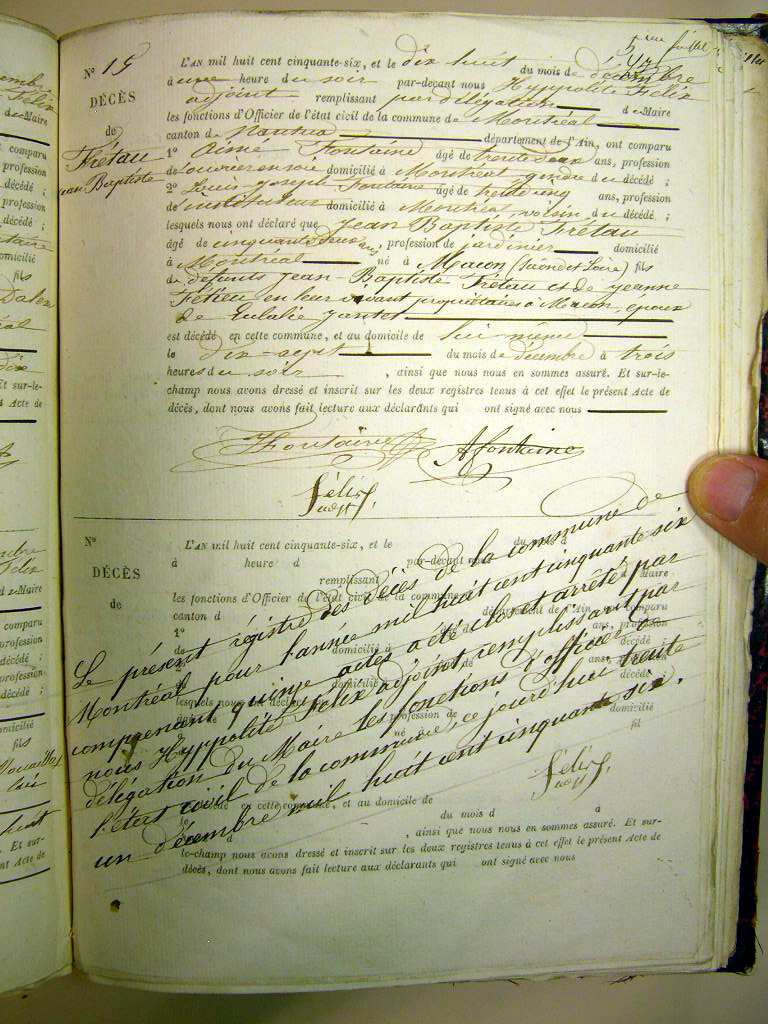 5me feuillet
N° 15
DÉCÈS
de
Frétau
Jean Baptiste
L'AN mil huit cent cinquante-six, et le dix huit du mois de décembre
à une heure du soir par-devant nous Hyppolite Félix
adjoint remplissant par délégation du Maire
les fonctions d'Officier de l'état civil de la commune de Montréal
canton de Nantua département de l'Ain, ont comparu
1° Aimé Fontaine âgé de trente deux ans, profession
de ouvrier en soie domicilié à Montréal, gendre du décédé ;
2° Louis Joseph Fontaine âgé de trente cinq ans, profession
de instituteur domicilié à Montréal, voisin du décédé ;
lesquels nous ont déclaré que Jean Baptiste Frétau
âgé de cinquante deux ans, profession de jardinier domicilié
à Montréal né à Macon (Saône et Loire) fils
de défunts Jean-Baptiste Frétau et de Jeanne
en leur vivant propriétaires à Macon, époux
de Eulalie
est décédé en cette commune, et au domicile de lui même
le dix-sept du mois de décembre à trois
heures du soir, ainsi que nous nous en sommes assuré. Et sur-le-
champ nous avons dressé et inscrit sur les deux registres tenus à cet effet le présent Acte de
décès, dont nous avons fait lecture aux déclarants qui ont signé avec nous
Fontaine Afontaine
Félix
adjt
N°
DÉCÈS
de
L'AN mil huit cent cinquante-six, et le du mois d
à heure d par-devant nous
remplissant d Maire
les fonctions d'Officier de l'état civil de la commune de
canton d département de l'Ain, ont comparu
Le présent régistre des décès de la commune de
Montréal pour l'année mil huit cent cinquante six
comprenant quinze actes a été clos et arrêté par
nous Hyppolite Félix adjoint remplissant par
délégation du Maire les fonctions d'officier de
l'état civil de la commune, ce jourd'hui trente
un décembre mil huit cent cinquante six.
Félix
adjt
décédé en cette commune, et au domicile de
le du mois d à
heure d , ainsi que nous nous en sommes assuré. Et sur-
le-champ nous avons dressé et inscrit sur les deux registres tenus à cet effet le présent Acte de
décès, dont nous avons fait lecture aux déclarants qui ont signé avec nous